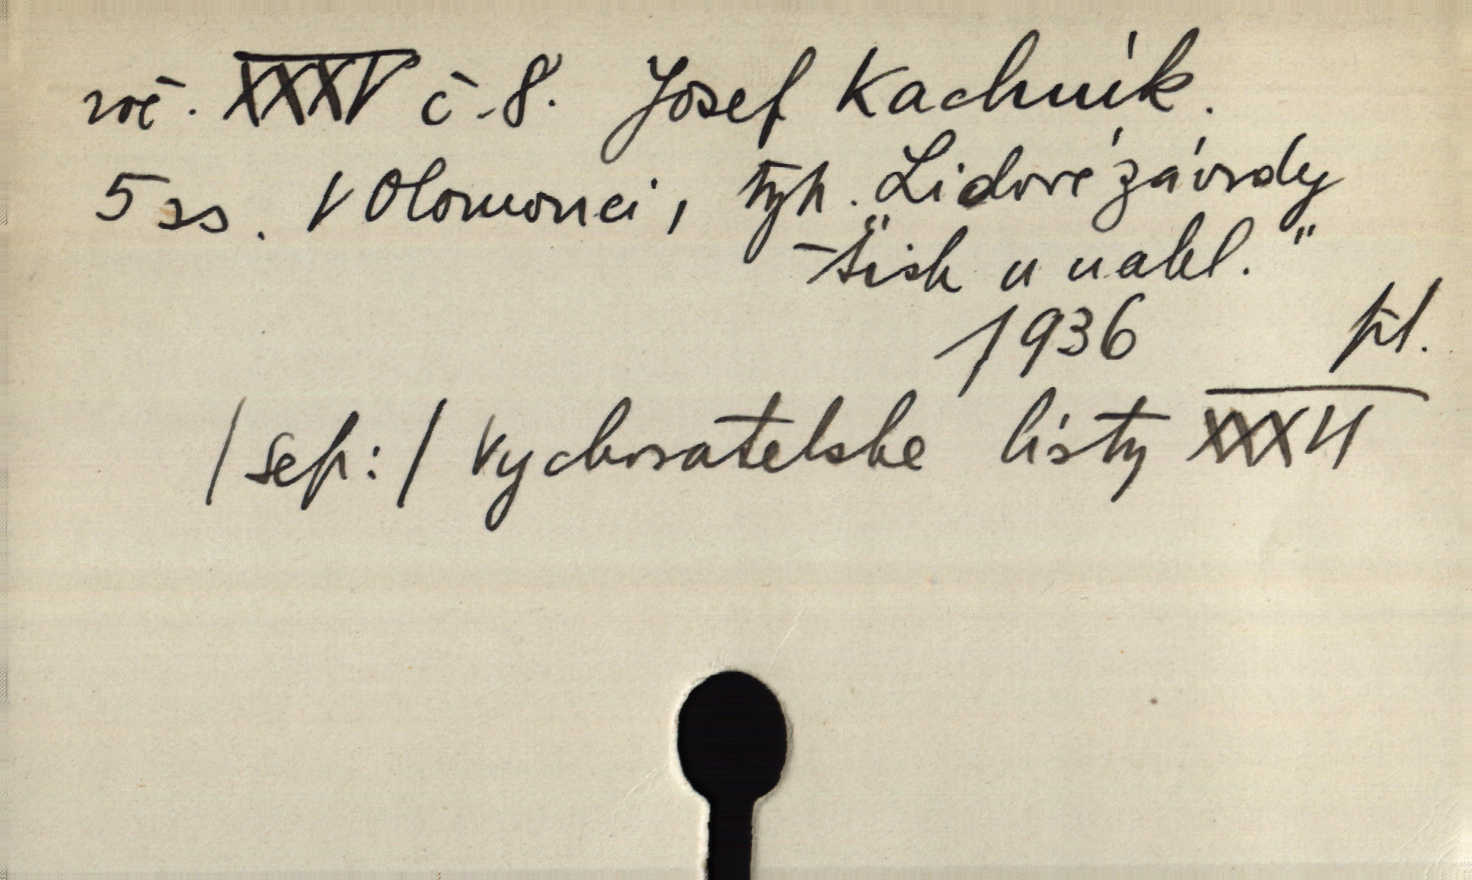 roč. XXXV č. 8. Josef Kachník.
5 ss. V Olomouci, typ. Lidové závody
"tisk a nakl."
1936 pl.
/sep:/ Vychovatelske listy XXXVI